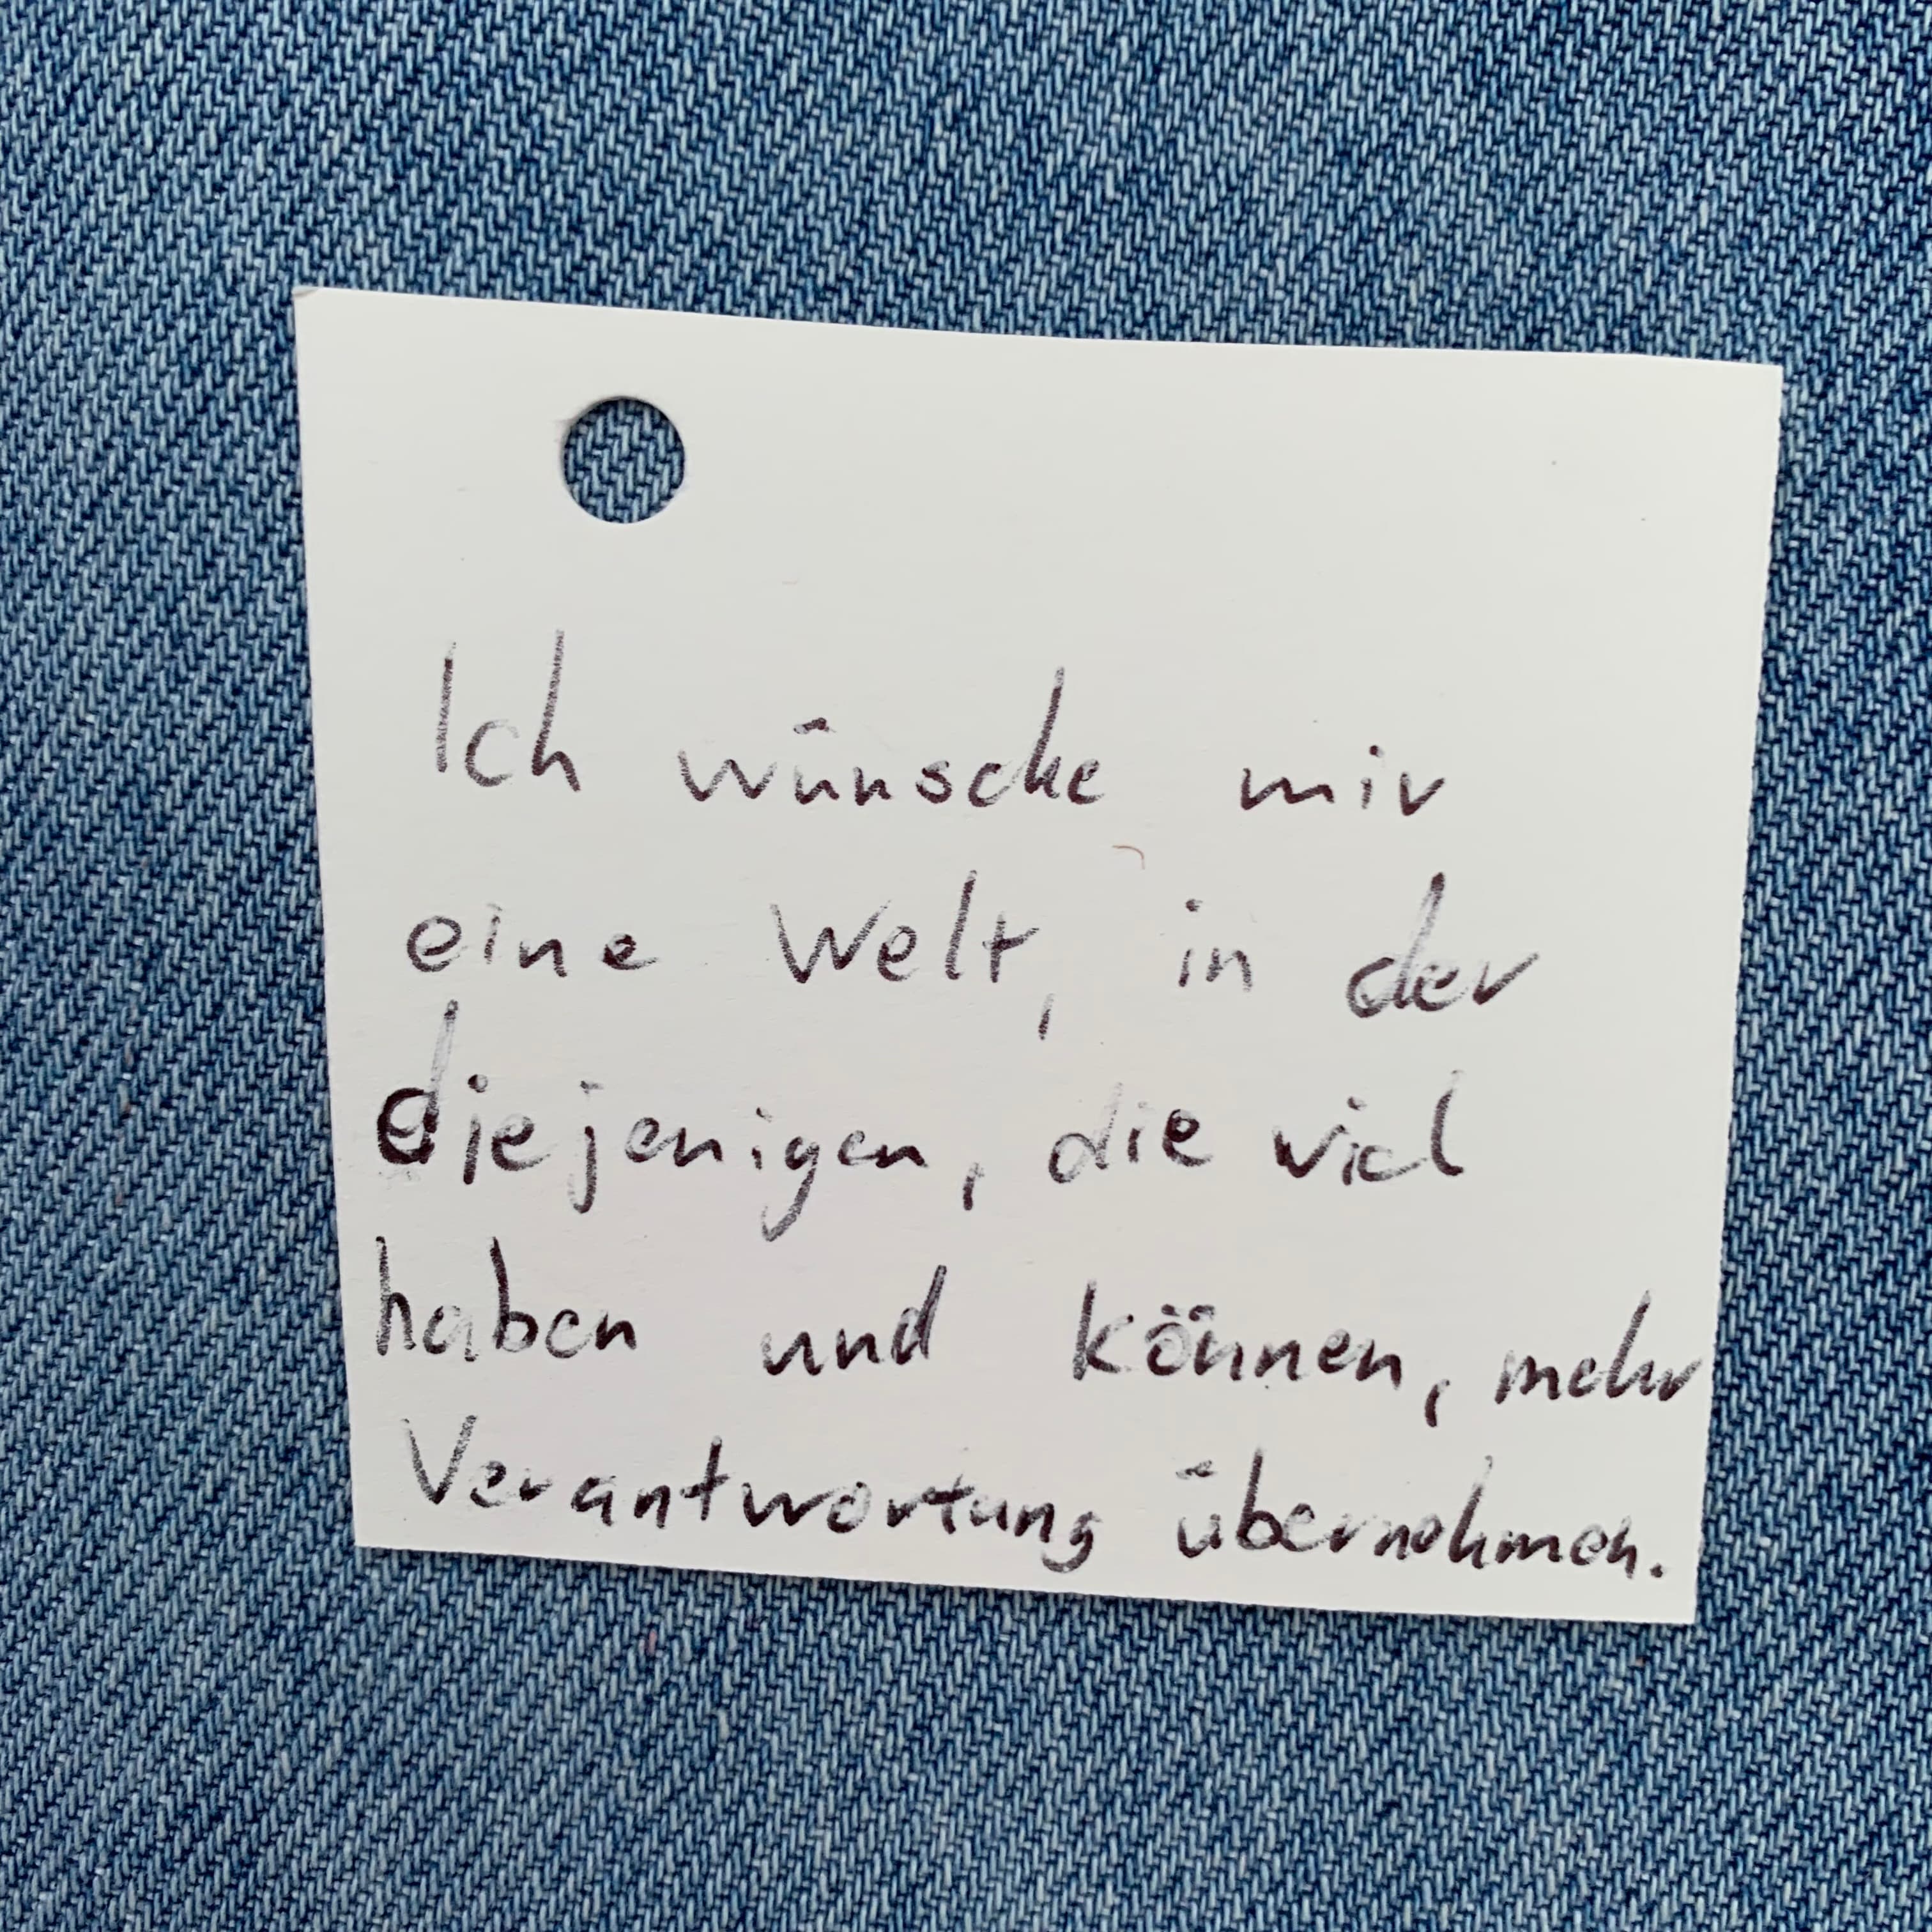 Ich wünsche mir
eine Welt, in der
diejenigen, die viel
haben und können, mehr
Verantwortung übernehmen.